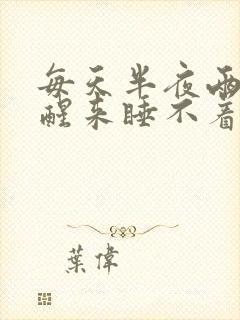 每天半夜两
醒来睡不着
葉偉